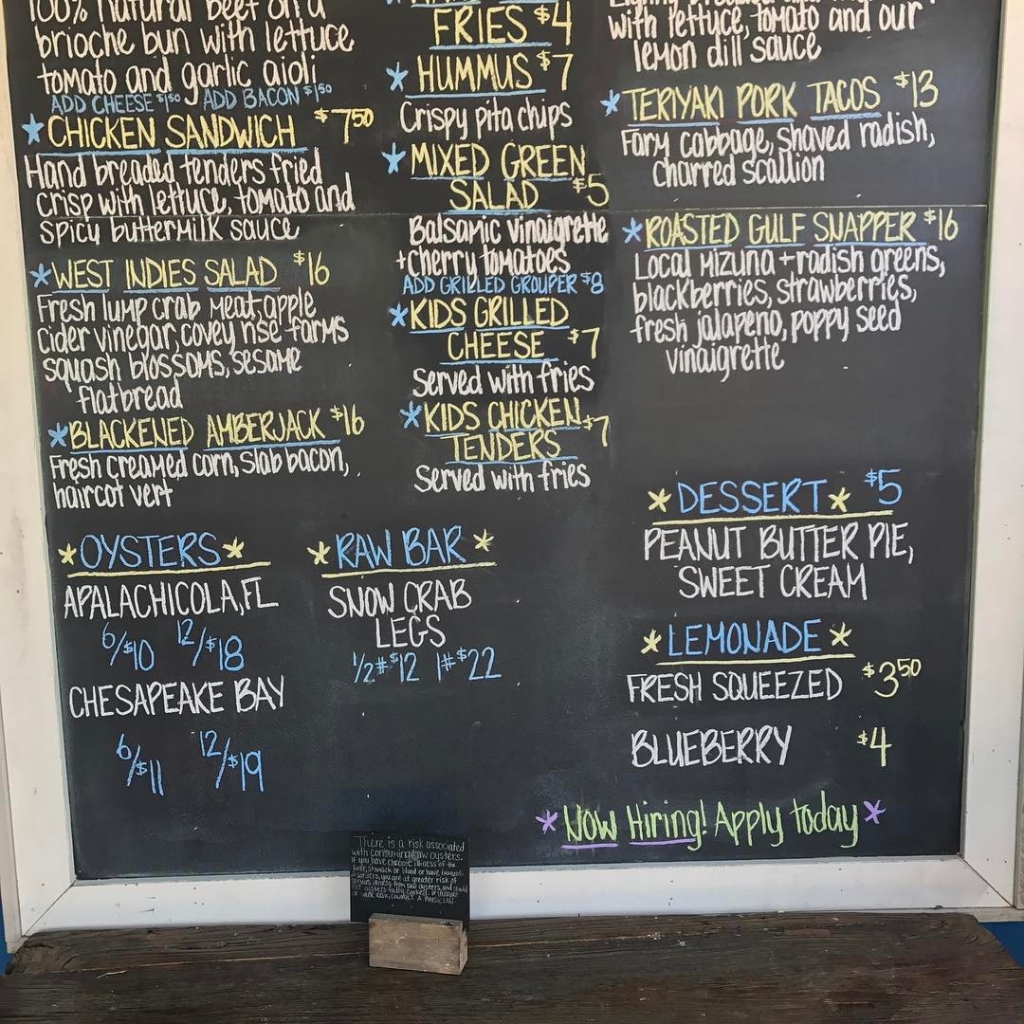 100% natural beef on a
brioche bun with lettuce
tomato and garlic aioli
ADD CHEESE $1.50 ADD BACON $1.50
*CHICKEN SANDWICH $7.50
Hand breaded tenders fried
crisp with lettuce, tomato and
spicy buttermilk sauce
*WEST INDIES SALAD $16
Fresh lump crab meat, apple
cider vinegar, covey rise farms
squash blossoms, sesame
flatbread
*BLACKENED AMBERJACK $16
Fresh creamed corn, slab bacon,
haircot vert
FRIES $4
*HUMMUS $7
Crispy pita chips
*MIXED GREEN
SALAD $5
Balsamic vinaigrette
+cherry tomatoes
ADD GRILLED GROUPER $8
*KIDS GRILLED
CHEESE $7
Served with fries
*KIDS CHICKEN
TENDERS $7
Served with fries
with lettuce, tomato and our
lemon dill sauce
*TERIYAKI PORK TACOS $13
Farm cabbage, shaved radish,
charred scallion
*ROASTED GULF SNAPPER $16
Local mizuna + radish greens,
blackberries, strawberries,
fresh jalapeno, poppy seed
vinaigrette
*OYSTERS*
APALACHICOLA, FL
6/$10 12/$18
CHESAPEAKE BAY
6/$11 12/$19
*RAW BAR*
SNOW CRAB
LEGS
1/2#$12 1#$22
*DESSERT* $5
PEANUT BUTTER PIE,
SWEET CREAM
*LEMONADE*
FRESH SQUEEZED $3.50
BLUEBERRY $4
*Now Hiring! Apply today*
There is a risk associated
with consuming raw oysters.
If you have chronic illness of the
liver, stomach or blood or have immune
disorders, you are at greater risk of